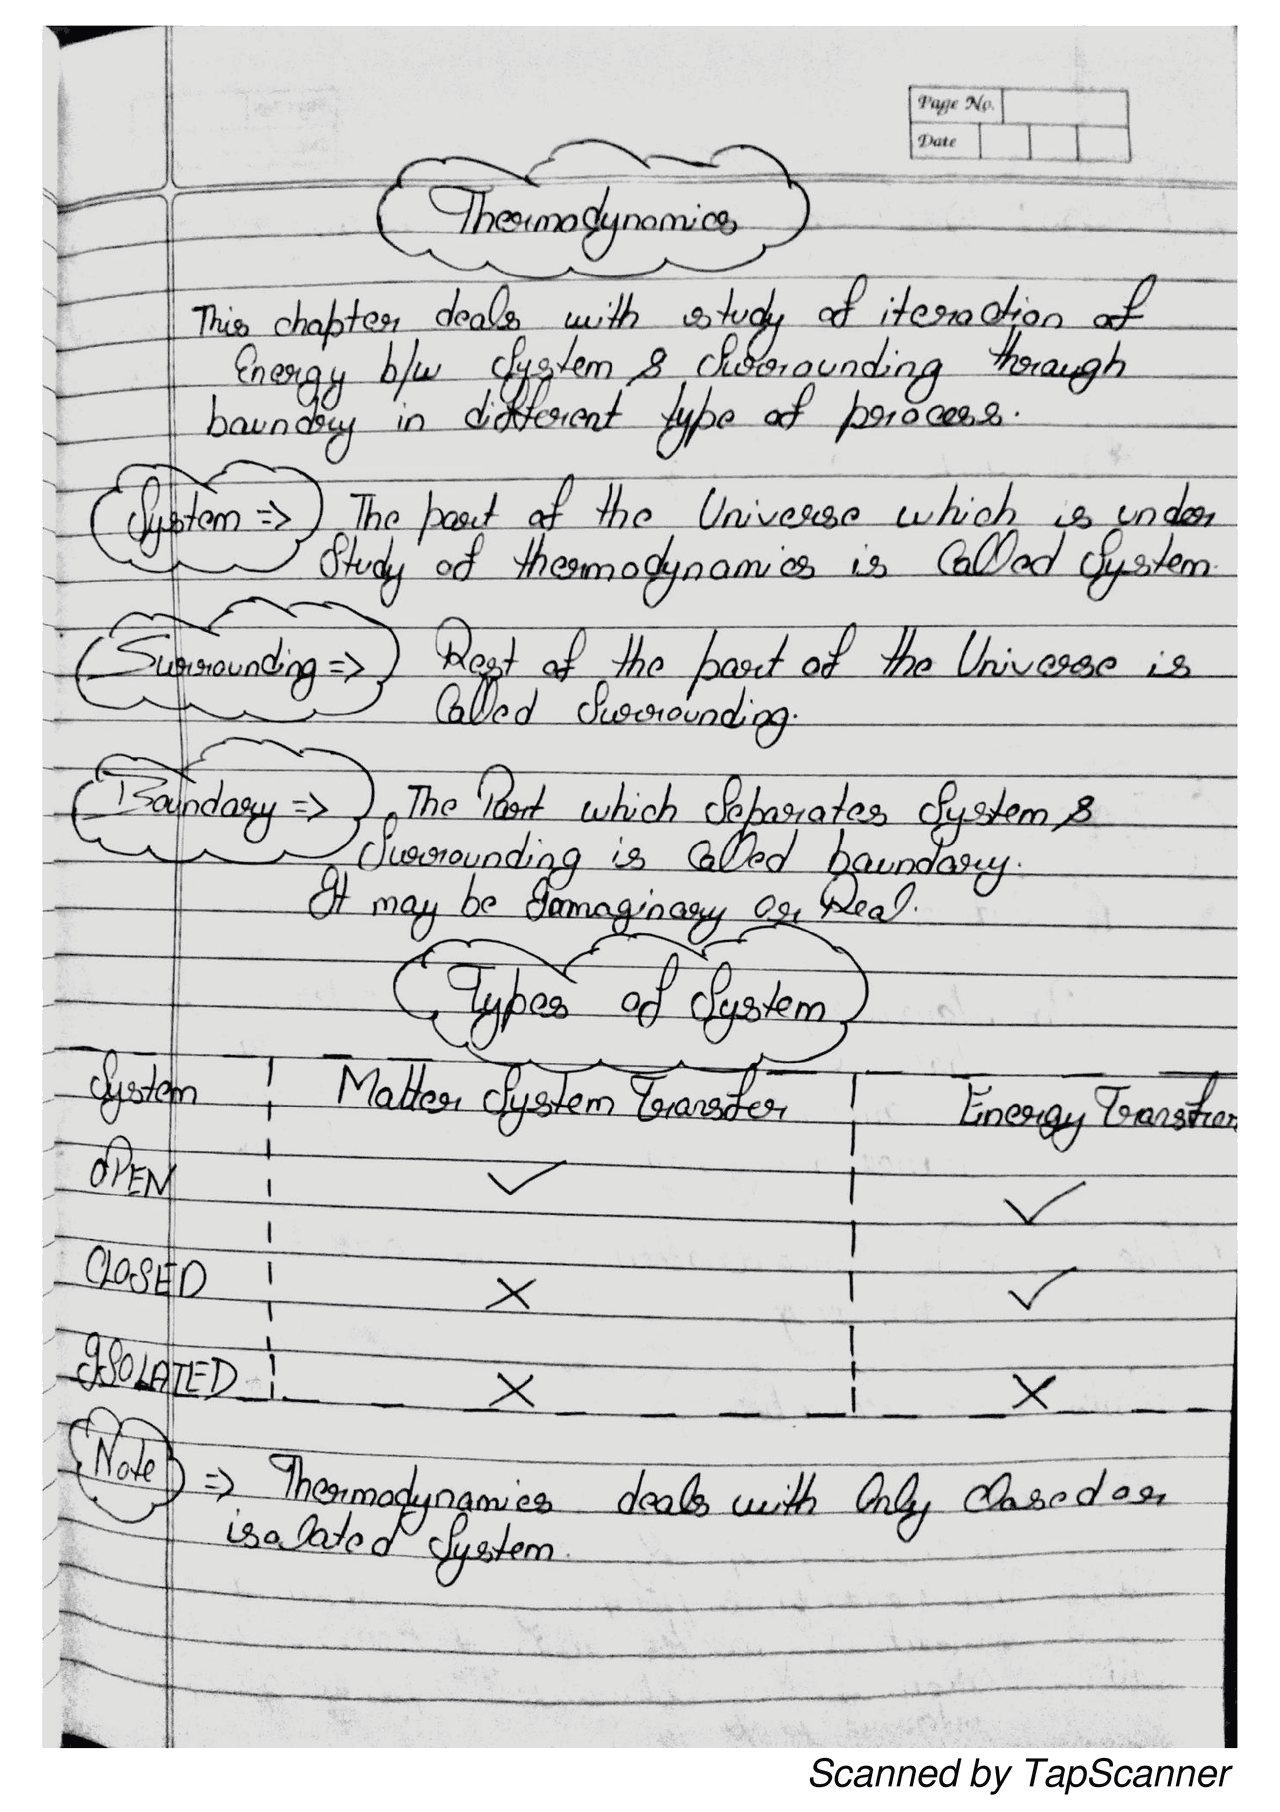 Page No.
Date
Thermodynamics
This chapter deals with study of iteraction of
Energy b/w System & Surrounding through
boundry in different type of process.
System => The part of the Universe which is under
Study of thermodynamics is Called System.
Surrounding => Rest of the part of the Universe is
Called Surrounding.
Boundary => The Part which Separates System &
Surrounding is Called boundary.
It may be Imaginary or Real.
Types of System
System Matter System Transfer Energy Transfer
OPEN ✓ ✓
CLOSED × ✓
ISOLATED × ×
Note => Thermodynamics deals with Only Closed or
isolated System.
Scanned by TapScanner